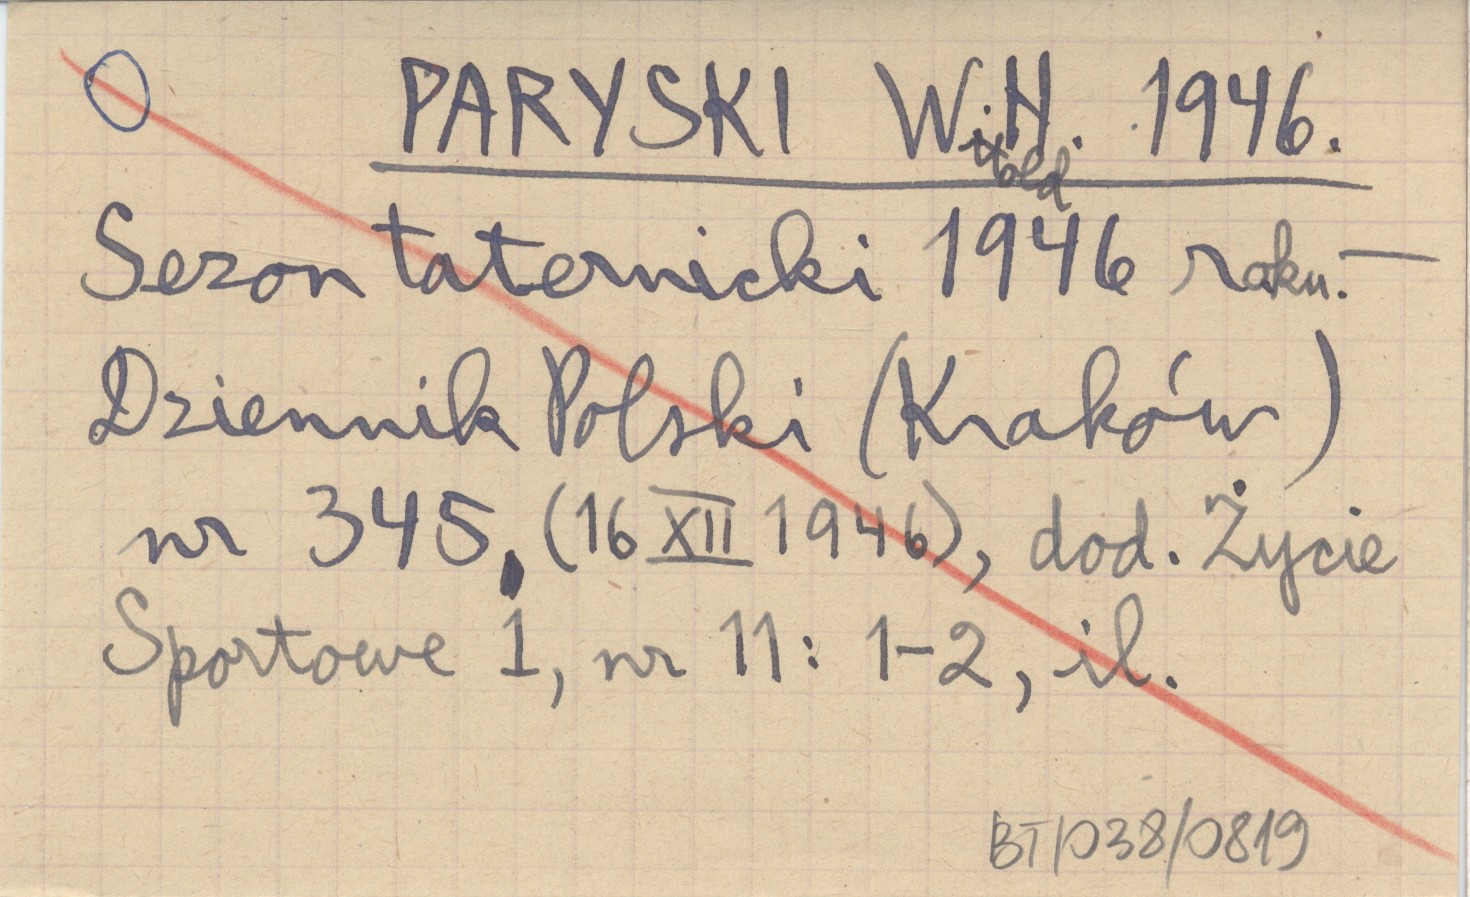 PARYSKI W.H. 1946.
itold
Sezon taternicki 1946 roku. —
Dziennik Polski (Kraków)
nr 345, (16 XII 1946), dod. Życie
Sportowe 1, nr 11: 1-2, il.
BT/038/0819